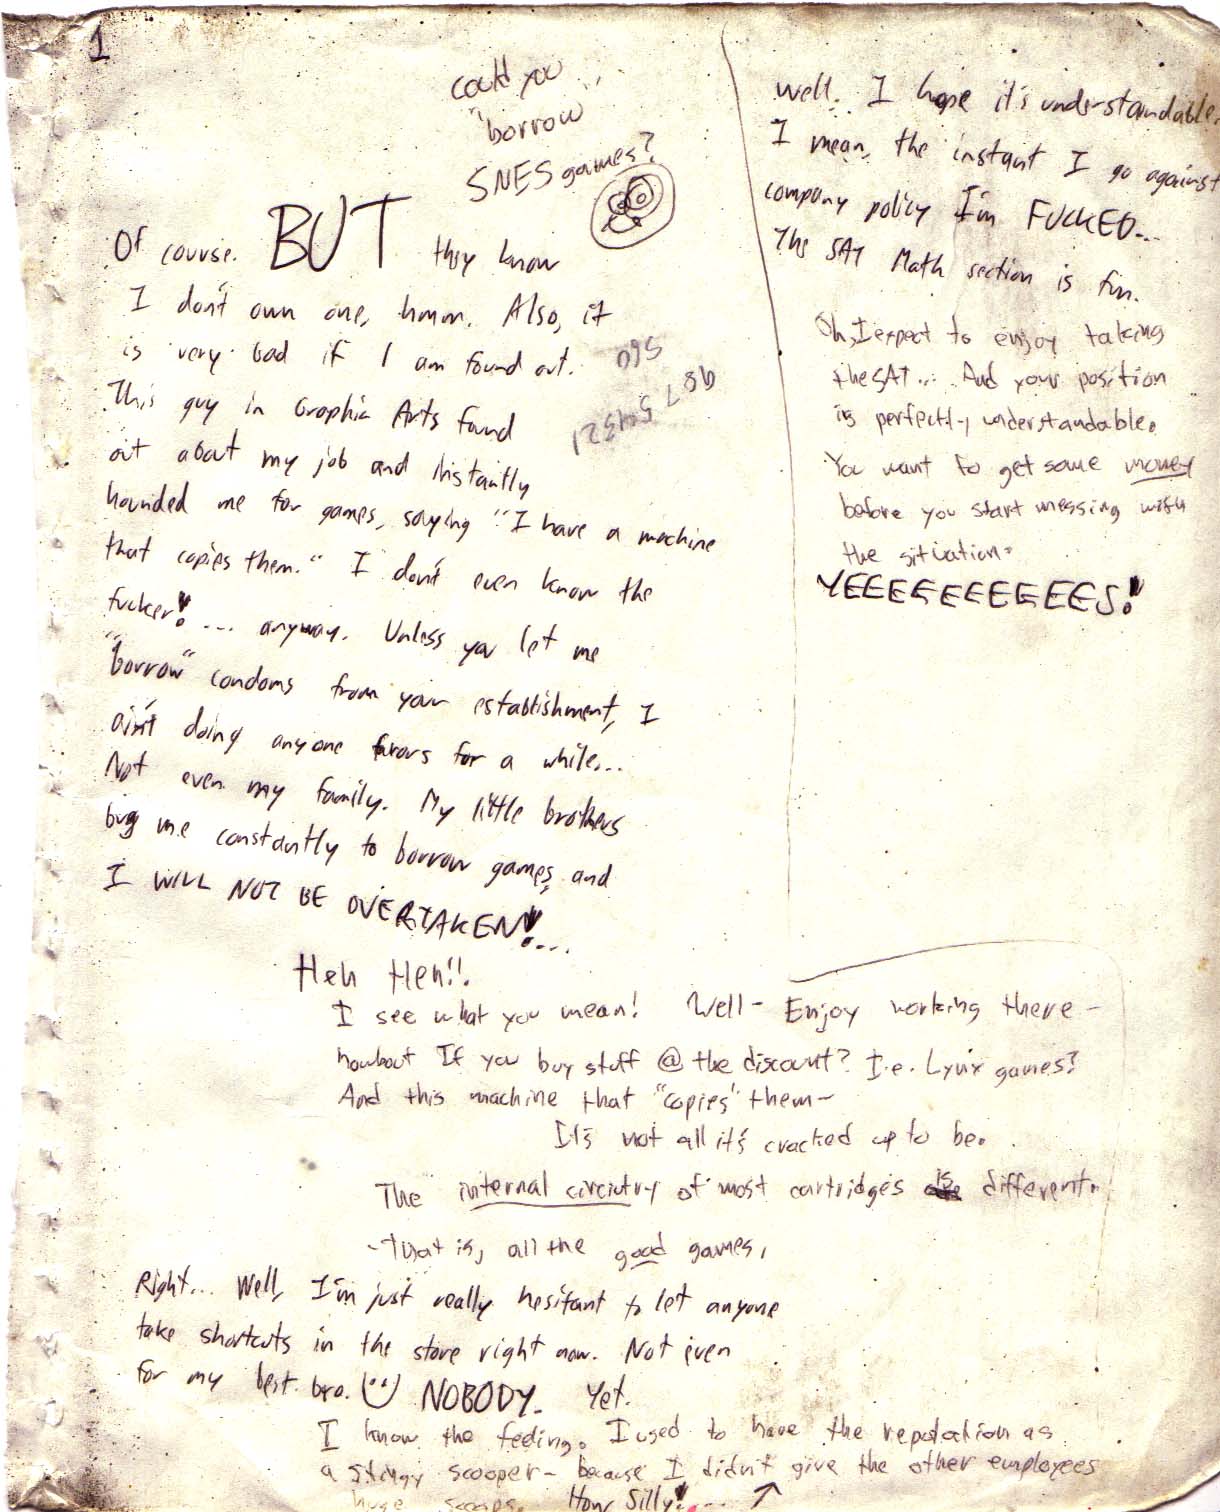 1
could you ...
"borrow
SNES games?
Of course. BUT they know
I don't own one, hmm. Also, it
is very bad if I am found out.
560
987 54321
This guy in Graphic Arts found
out about my job and instantly
hounded me for games, saying "I have a machine
that copies them." I don't even know the
fucker!... anyway. Unless you let me
"borrow" condoms from your establishment, I
ain't doing anyone favors for a while...
Not even my family. My little brothers
bug me constantly to borrow games, and
I WILL NOT BE OVERTAKEN!...
Heh Heh!!
I see what you mean! Well- Enjoy working there -
howbout If you buy stuff @ the discount? I.e. Lynx games?
And this machine that "copies" them-
It's not all it's cracked up to be.
The internal circiutry of most cartridges is different.
-That is, all the good games,
Right... Well, I'm just really hesitant to let anyone
take shortcuts in the store right now. Not even
for my best bro. NOBODY. Yet.
I know the feeling. I used to have the reputation as
a stingy scooper- because I didn't give the other employees
huge scoops. How Silly!...
well. I hope it's understandable.
I mean, the instant I go against
company policy I'm FUCKED...
The SAT Math section is fun.
Oh, I expect to enjoy taking
the SAT... And your position
is perfectly understandable.
You want to get some money
before you start messing with
the situation.
YEEEEEEEEEES!